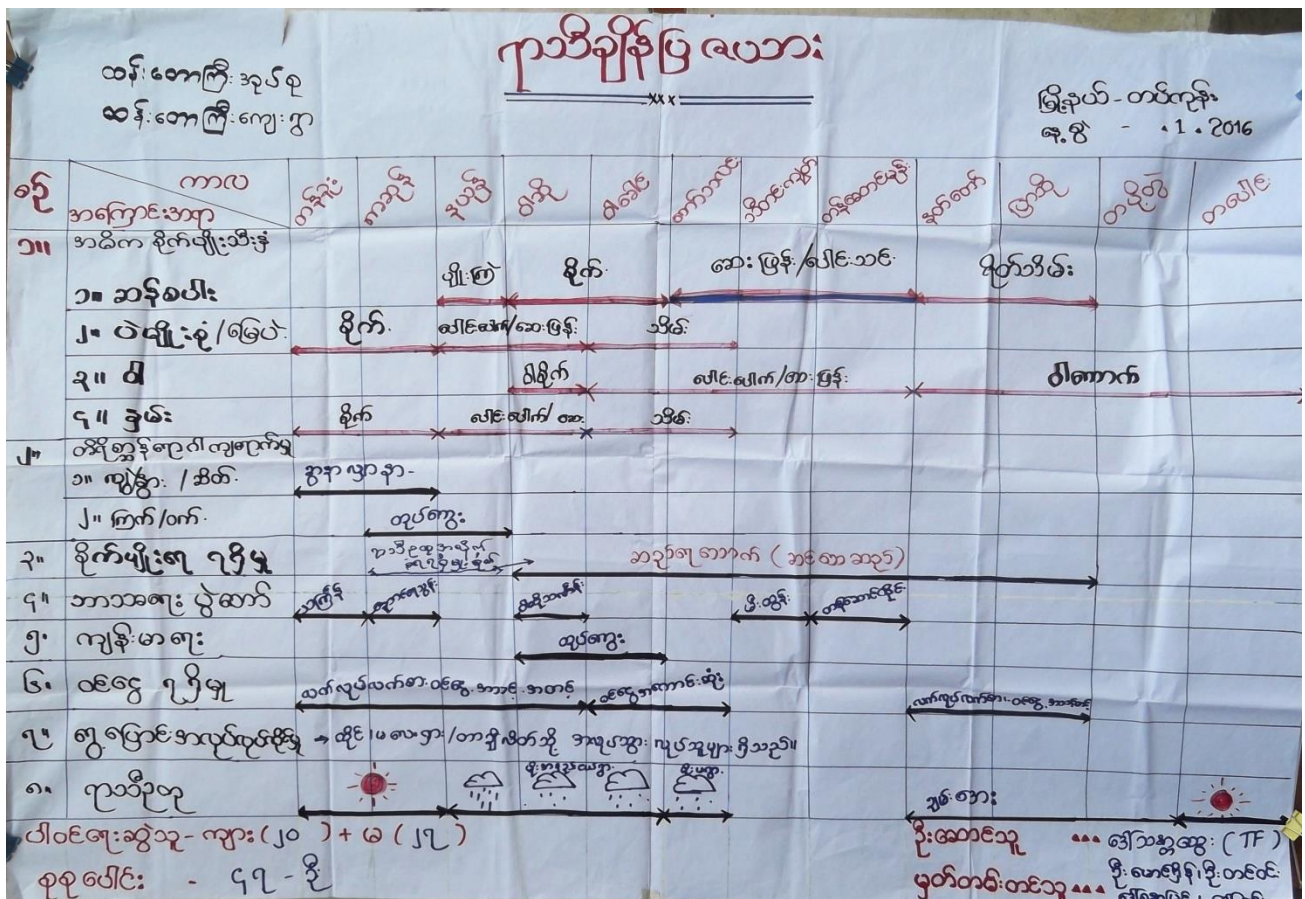 ရာသီချိန်ပြ ဇယား
ထန်းတောကြီး အုပ်စု
ထန်းတောကြီးကျေးရွာ
မြို့နယ် - တပ်ကုန်း
နေ့စွဲ - .1.2016
စဉ် ကာလ အကြောင်းအရာ တန်ခူး ကဆုန် နယုန် ဝါဆို ဝါခေါင် တော်သလင်း သီတင်းကျွတ် တန်ဆောင်မုန်း နတ်တော် ပြာသို တပို့တွဲ တပေါင်း
၁။ အဓိက စိုက်မျိုးသီးနှံ
၁။ ဆန်စပါး ပျိုးကြဲ စိုက် ဆေးဖြန်း/ပေါင်းသင် ရိတ်သိမ်း
၂။ ပဲမျိုးစုံ/မြေပဲ စိုက် ပေါင်းလိုက်/ဆေးဖြန်း သိမ်း
၃။ ဝါ ဝါစိုက် ပေါင်းပေါက်/ဆေးဖြန်း ဝါကောက်
၄။ နှမ်း စိုက် ပေါင်းပေါက်/ဆေး သိမ်း
၂။ တိရိစ္ဆာန်ရောဂါကျရောက်မှု
၁။ ကျွဲ/နွား/ဆိတ် ခွာနာလျှာနာ-
၂။ ကြက်/ဝက် တုပ်ကွေး
၃။ စိုက်ပျိုးရေ ရရှိမှု ဆည်ရေသောက်
၄။ ဘာသာရေး ပွဲတော် သင်္ကြန် ညောင်ရေသွန်း ဝါဆိုသင်္ကန်း မီးထွန်း တန်ဆောင်တိုင်
၅။ ကျန်းမာရေး တုပ်ကွေး
၆။ ဝင်ငွေ ရရှိမှု လက်လုပ်လက်စား ဝင်ငွေ အသင့်အတင့် ဝင်ငွေအကောင်းဆုံး လက်လုပ်လက်စား ဝင်ငွေ
၇။ ရွှေ့ပြောင်းအလုပ်လုပ်ကိုင်မှု → ထိုင်း၊ မလေးရှား/တာချီလိတ်သို့ အလုပ်သွားလုပ်သူများ ရှိသည်။
၈။ ရာသီဥတု ချမ်းအေး
ပါဝင်ရေးဆွဲသူ - ကျား (၂၀) + မ (၂၇)
စုစုပေါင်း - ၄၇ - ဦး
ဦးဆောင်သူ ... (TF)
မှတ်တမ်းတင်သူ ...